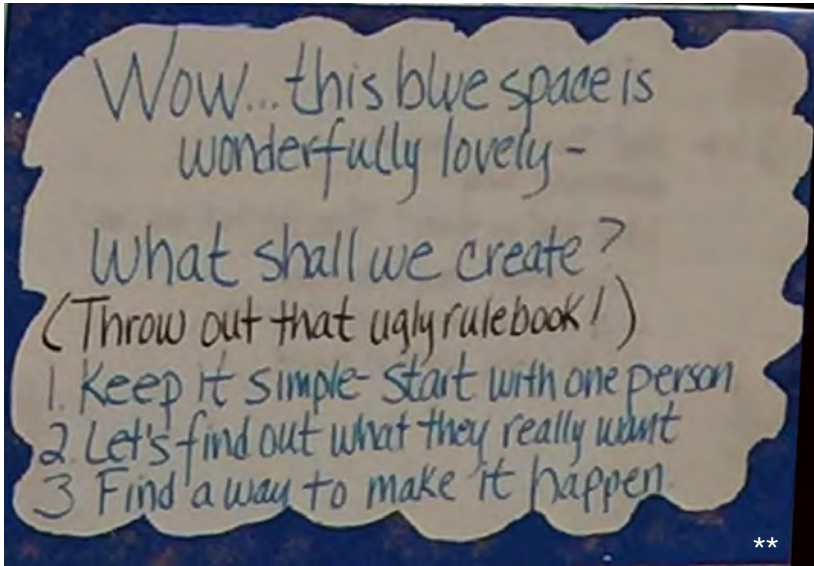 Wow...this blue space is
wonderfully lovely -
What shall we create?
(Throw out that ugly rulebook!)
1. Keep it simple - Start with one person
2. Let's find out what they really want
3 Find a way to make it happen.
**